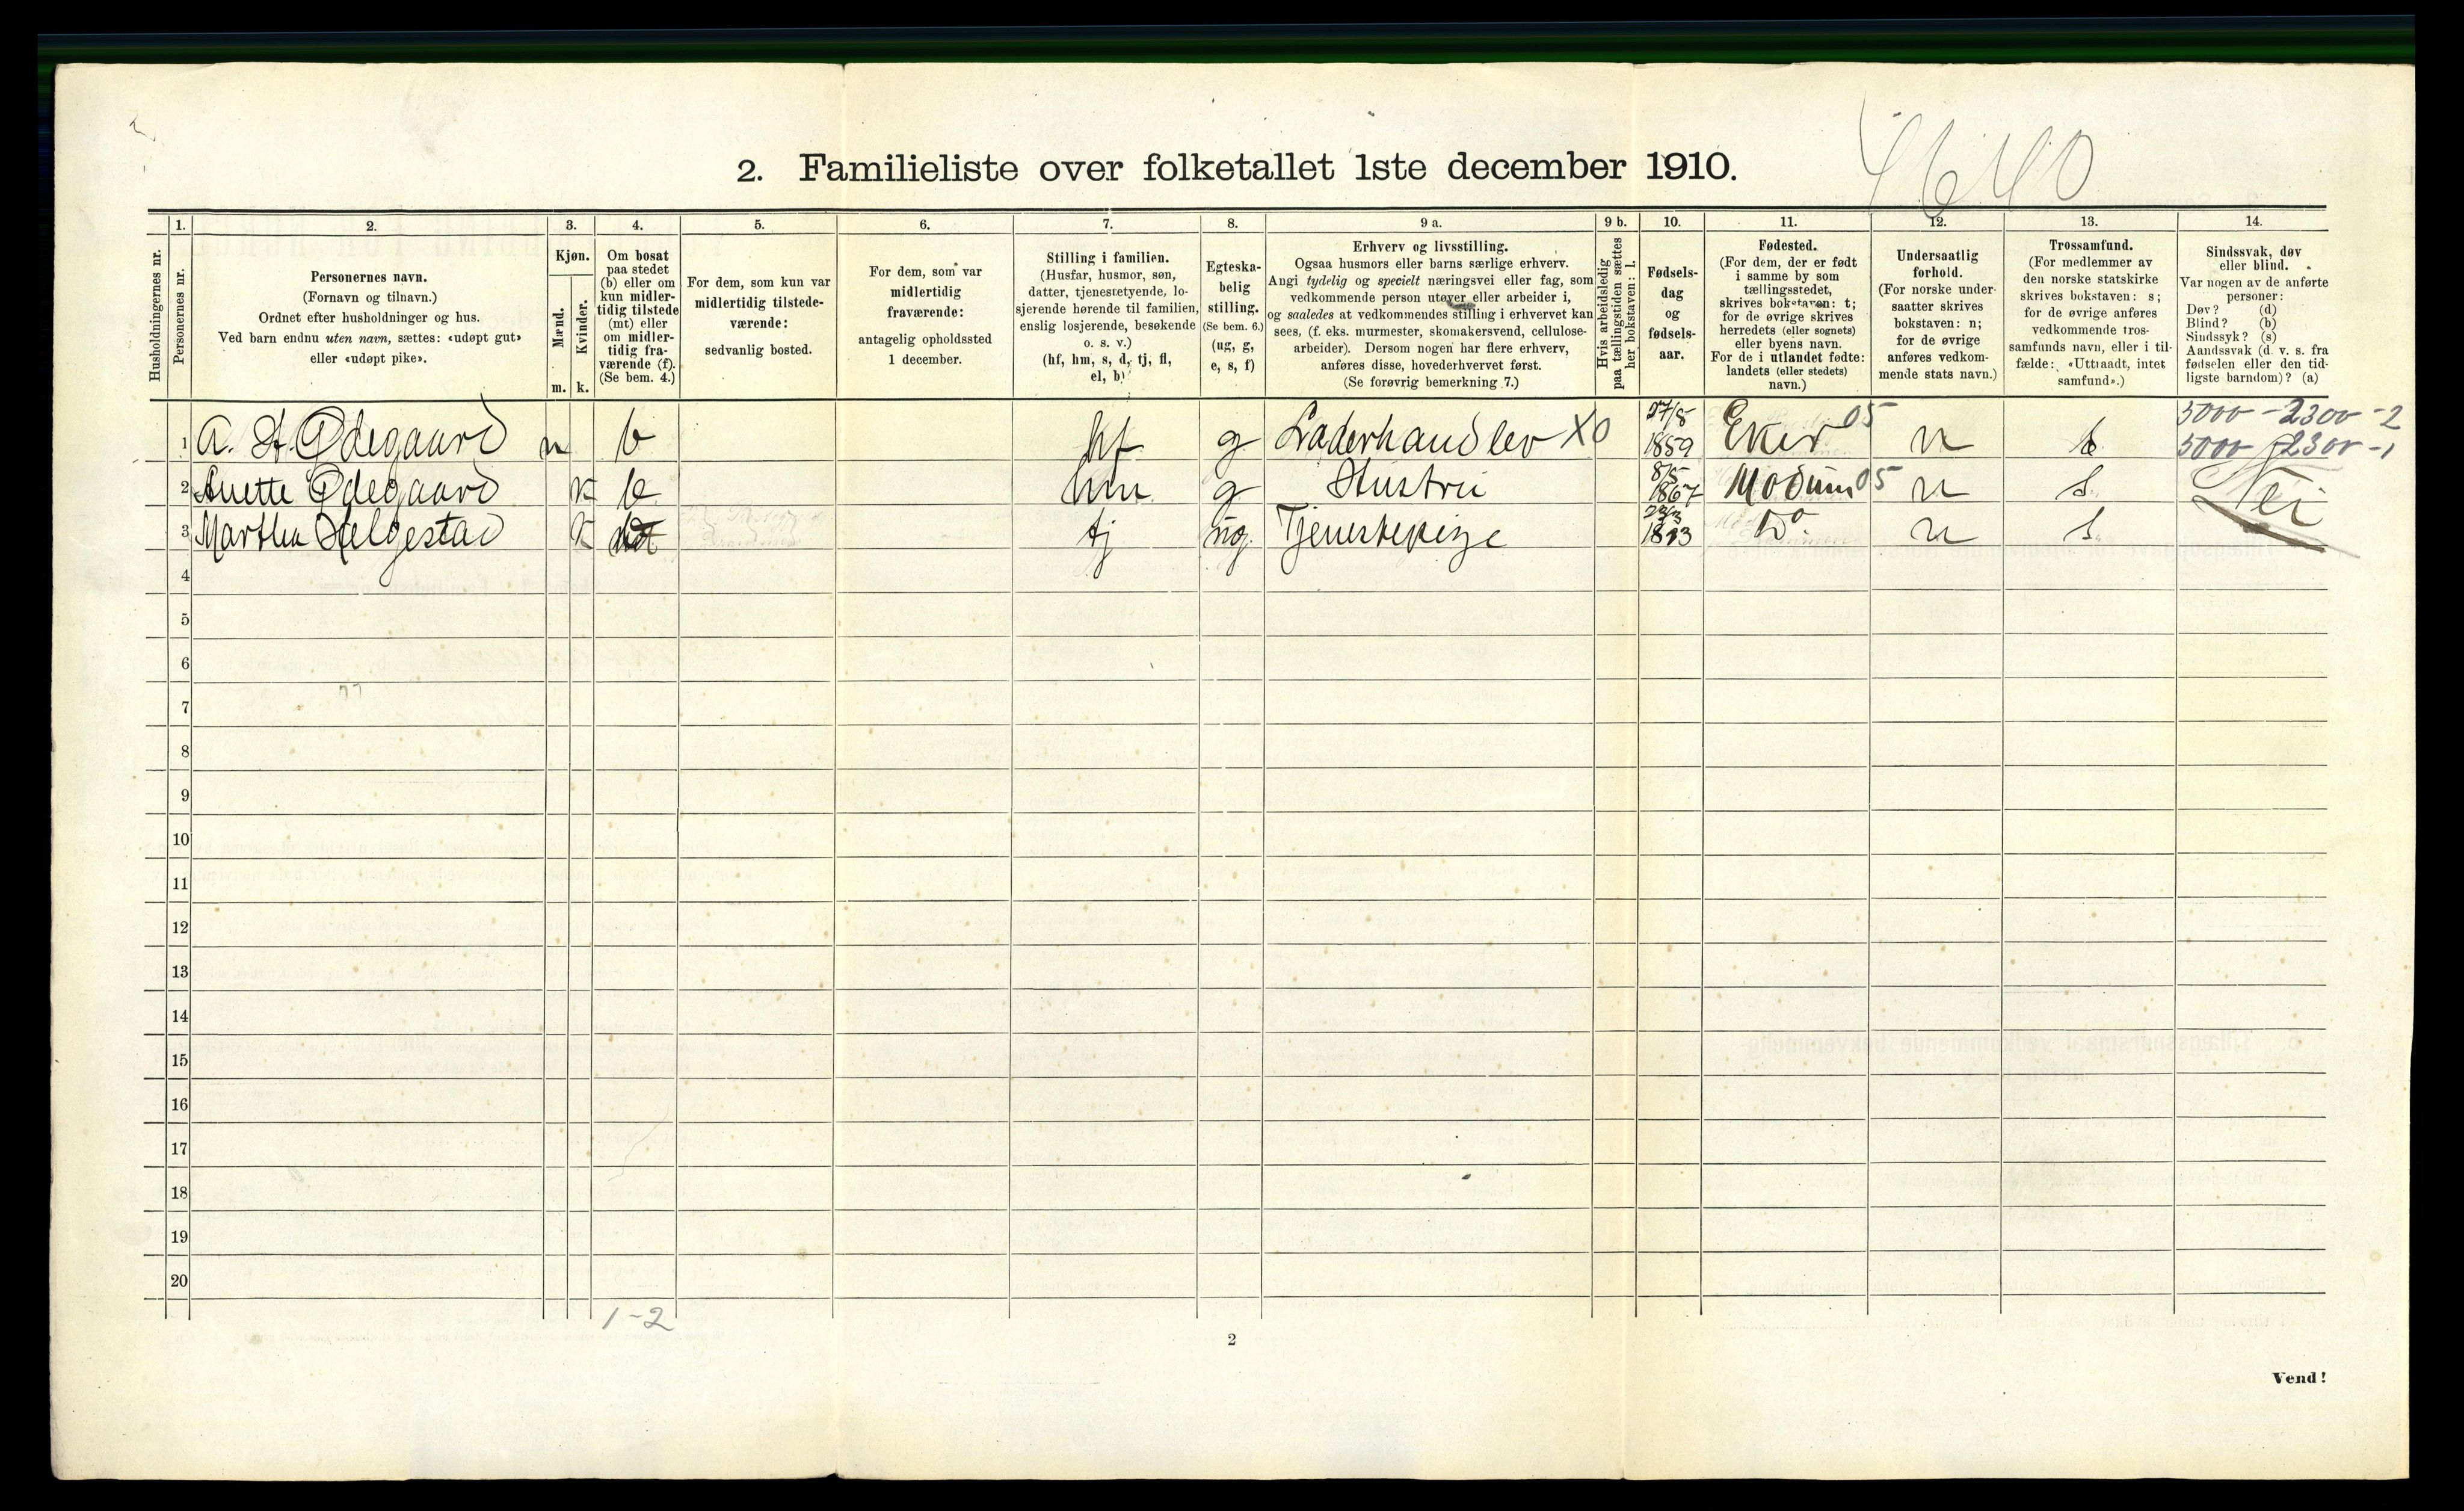 4640
2. Familieliste over folketallet 1ste december 1910.
1. 2. 3. 4. 5. 6. 7. 8. 9 a. 9 b. 10. 11. 12. 13. 14.
Husholdningernes nr.
Personernes nr.
Personernes navn.
(Fornavn og tilnavn.)
Ordnet efter husholdninger og hus.
Ved barn endnu uten navn, sættes: «udøpt gut»
eller «udøpt pike».
Kjøn.
Mænd.
m.
Kvinder.
k.
Om bosat
paa stedet
(b) eller om
kun midler-
tidig tilstede
(mt) eller
om midler-
tidig fra-
værende (f).
(Se bem. 4.)
For dem, som kun var
midlertidig tilstede-
værende:
sedvanlig bosted.
For dem, som var
midlertidig
fraværende:
antagelig opholdssted
1 december.
Stilling i familien.
(Husfar, husmor, søn,
datter, tjenestetyende, lo-
sjerende hørende til familien,
enslig losjerende, besøkende
o. s. v.)
(hf, hm, s, d, tj, fl,
el, b)
Egteska-
belig
stilling.
(Se bem. 6.)
(ug, g,
e, s, f)
Erhverv og livsstilling.
Ogsaa husmors eller barns særlige erhverv.
Angi tydelig og specielt næringsvei eller fag, som
vedkommende person utøver eller arbeider i,
og saaledes at vedkommendes stilling i erhvervet kan
sees, (f. eks. murmester, skomakersvend, cellulose-
arbeider). Dersom nogen har flere erhverv,
anføres disse, hovederhvervet først.
(Se forøvrig bemerkning 7.)
Hvis arbeidsledig
paa tællingstiden sættes
her bokstaven: l.
Fødsels-
dag
og
fødsels-
aar.
Fødested.
(For dem, der er født
i samme by som
tællingsstedet,
skrives bokstaven: t;
for de øvrige skrives
herredets (eller sognets)
eller byens navn.
For de i utlandet fødte:
landets (eller stedets)
navn.)
Undersaatlig
forhold.
(For norske under-
saatter skrives
bokstaven: n;
for de øvrige
anføres vedkom-
mende stats navn.)
Trossamfund.
(For medlemmer av
den norske statskirke
skrives bokstaven: s;
for de øvrige anføres
vedkommende tros-
samfunds navn, eller i til-
fælde: «Uttraadt, intet
samfund».)
Sindssvak, døv
eller blind.
Var nogen av de anførte
personer:
Døv? (d)
Blind? (b)
Sindssyk? (s)
Aandssvak (d. v. s. fra
fødselen eller den tid-
ligste barndom)? (a)
1 A. H. Ødegaard m b hf g Læderhandler X0 27/8 1859 Eker 05 n s 5000 - 2300 - 2
5000 - 2300 - 1
2 Anette Ødegaard k b hm g Hustru 8/5 1867 Modum 05 n s Nei
3 Martha Helgestad k tj ug. Tjenestepige Do. n s
4
5
6
7
8
9
10
11
12
13
14
15
16
17
18
19
20
1 - 2
2
Vend!